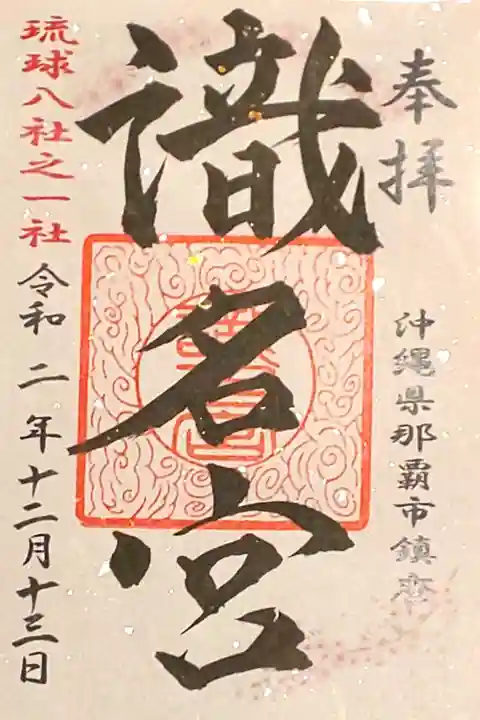 奉拝
沖縄県那覇市鎮齋
識名宮
琉球八社之一社
令和二年十二月十三日